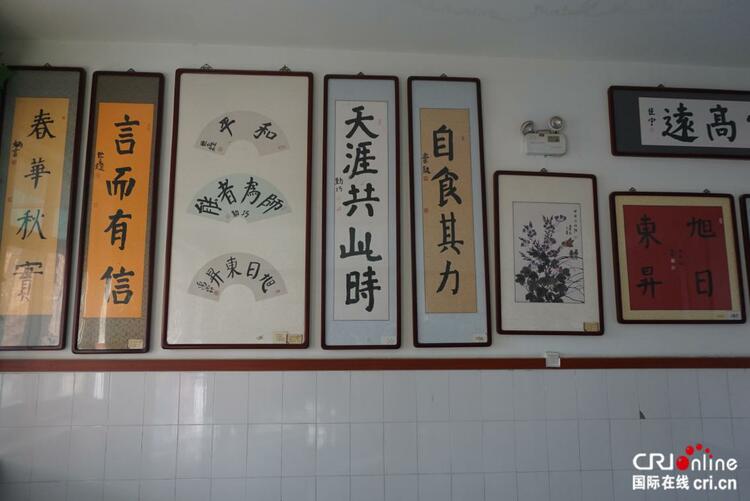 春華秋實
言而有信
和平
能者為師
旭日東昇
天涯共此時
自食其力
高遠
旭日
東昇
CRIonline
国际在线 cri.cn